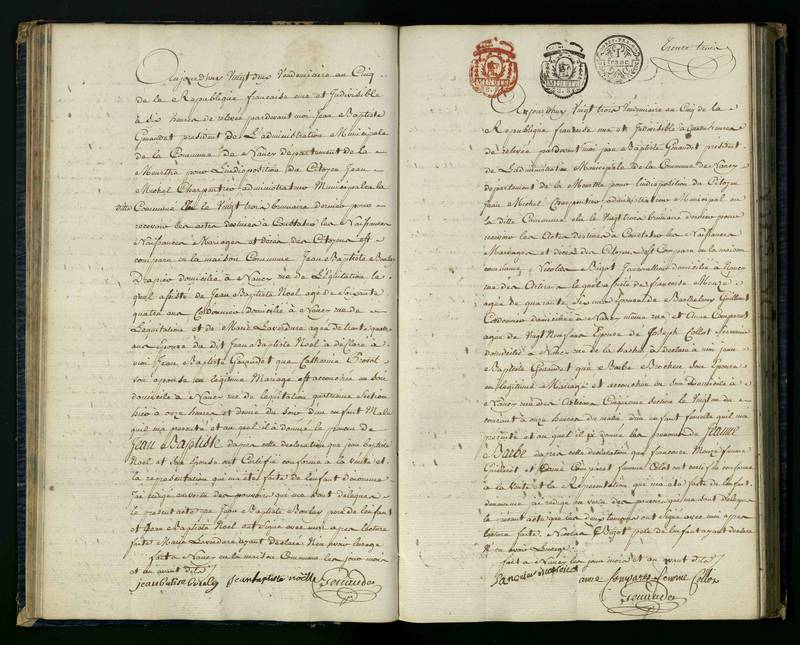 Aujourdhuy Vingt deux Vendemiaire au Cinq
de la Republique francaise une et Indivisible
à dix heures de relevée pardevant moi Jean Baptiste
Geraudet president de L'administration Municipale
de la Commune de Nancy departement de la
Meurthe pour L'indisposition du Citoyen Jean
Michel Charpentier administrateur Municipal en la
ditte Commune élu le Vingt trois brumaire dernier pour
recevoir les actes destinés à Constater les Naissances
Naissances Mariages et décès des Citoyens est
comparu en la maison Commune Jean Baptiste
Drapier domicilié à Nancy rue de L'équitation le
quel assisté de Jean Baptiste Noel agé de Soixante
quatre ans Cordonnier Domicilié à Nancy rue de
Lequitation et de Marie Lavendure agée de trente quatre
ans Epouse du dit Jean Baptiste Noel à déclaré à
moi Jean Baptiste Geraudet que Catherine
son epouse en légitime Mariage est accouchée en Son
domicile à Nancy rue de Lequitation quatrieme Section
hier à onze heures et demie du Soir d'un enfant Male
quil ma presenté et au quel il à donné le prenom de
Jean Baptiste dapres cette déclaration que jean baptiste
Noel et Son Epouse ont Certifié conforme à la vérité et
la représentation qui m'a été faite de lenfant denommé
J'ai rédigé en vertu des pouvoirs qui me sont délégués
le present acte que Jean Baptiste pere de lenfant
et Jean Baptiste Noel ont signé avec moi apres lecture
faite Marie Lavendure ayant déclaré Ne savoir lusage
fait à Nancy en la maison Commune les jour mois
et an avant dits
jean baptiste noëlle Geraudet
1 franc
Trente trois
Aujourdhuy Vingt trois Vendemiaire au Cinq de la
Republique francaise une et Indivisible à quatre heures
de relevée pardevant moi jean Baptiste Geraudet president
de L'administration Municipale de la Commune de Nancy
departement de la Meurthe pour lindisposition du Citoyen
Jean Michel Charpentier administrateur Municipal en
la ditte Commune élu le Vingt trois brumaire dernier pour
recevoir les Actes destinés à Constater les Naissances
Mariages et décès des Citoyens est Comparu en la maison
commune Nicolas Bigot domicilié à Nancy
rue des Artisans lequel assisté de francoise Menze
agée de quarante Six ans Epouse de Barthelemy Guilleret
Cordonnier domiciliée à Nancy même rue et Anne Comparet
agée de Vingt Neuf ans Epouse de Joseph Collot
domiciliée à Nancy rue de la hache à déclaré à moi jean
Baptiste Geraudet que Barbe Son Epouse
en legitime Mariage est accouchée en Son Domicile à
Nancy rue des Cinquieme Section le Vingt un du
courant à onze heures du matin d'un enfant femelle quil ma
presenté et au quel il a donné les prenoms de Jeanne
Barbe dapres cette declaration que francoise Menze femme
Guilleret et Anne Comparet femme Collot ont certifié conforme
à la Vérité et la Représentation qui m'a été faite de lenfant
denommé j'ai rédigé en vertu des pouvoirs qui me sont délégués
le present acte que les deux temoins ont signé avec moi apres
lecture faite Nicolas Bigot pere de lenfant ayant declaré
Ne en avoir Lusage
fait à Nancy les jour mois et an avant dits
anne Comparet femme Collot
Geraudet